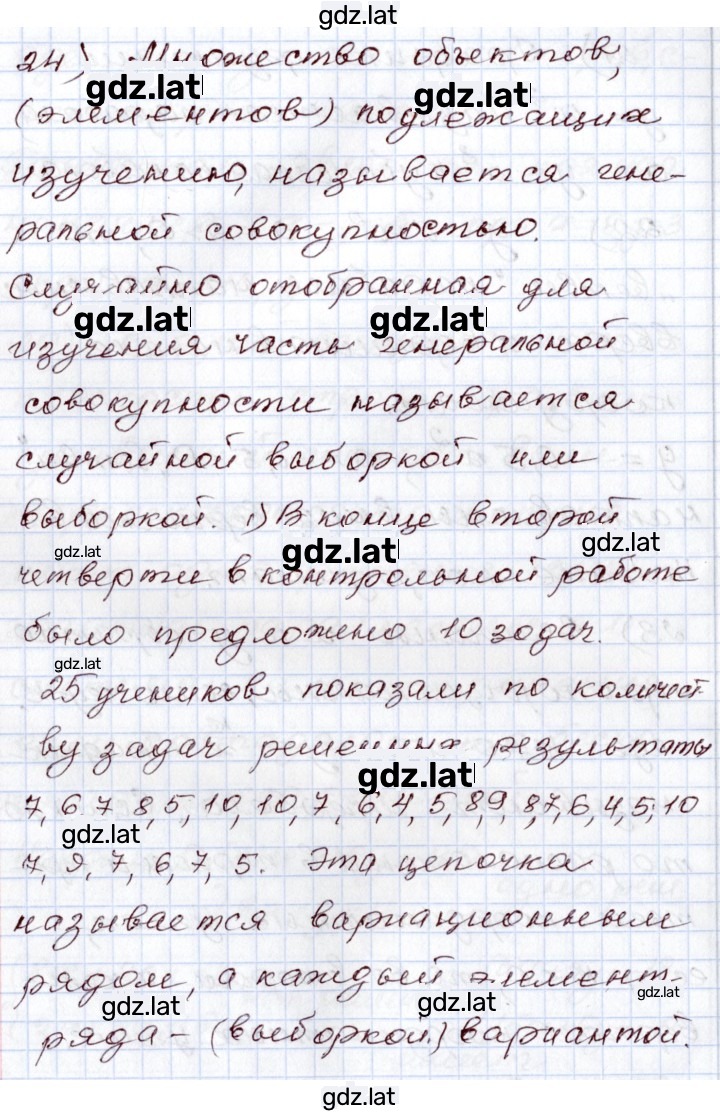 gdz.lat
24) Множество объектов,
gdz.lat gdz.lat
(элементов) подлежащих
изучению, называется гене-
ральной совокупностью.
Случайно отобранная для
gdz.lat gdz.lat
изучения часть генеральной
совокупности называется
случайной выборкой или
выборкой. 1) В конце второй
gdz.lat gdz.lat gdz.lat
четверти в контрольной работе
было предложено 10 зодач.
gdz.lat
25 учеников показали по количест
ву задач результаты
gdz.lat
7, 6, 7, 8, 5, 10, 10, 7, 6, 4, 5, 8, 9, 8, 7, 6, 4, 5, 10
gdz.lat
7, 9, 7, 6, 7, 5. Эта цепочка
называется вариационным
рядом, а каждый элемент-
gdz.lat gdz.lat gdz.lat
ряда - (выборкой.) вариантой.
gdz.lat